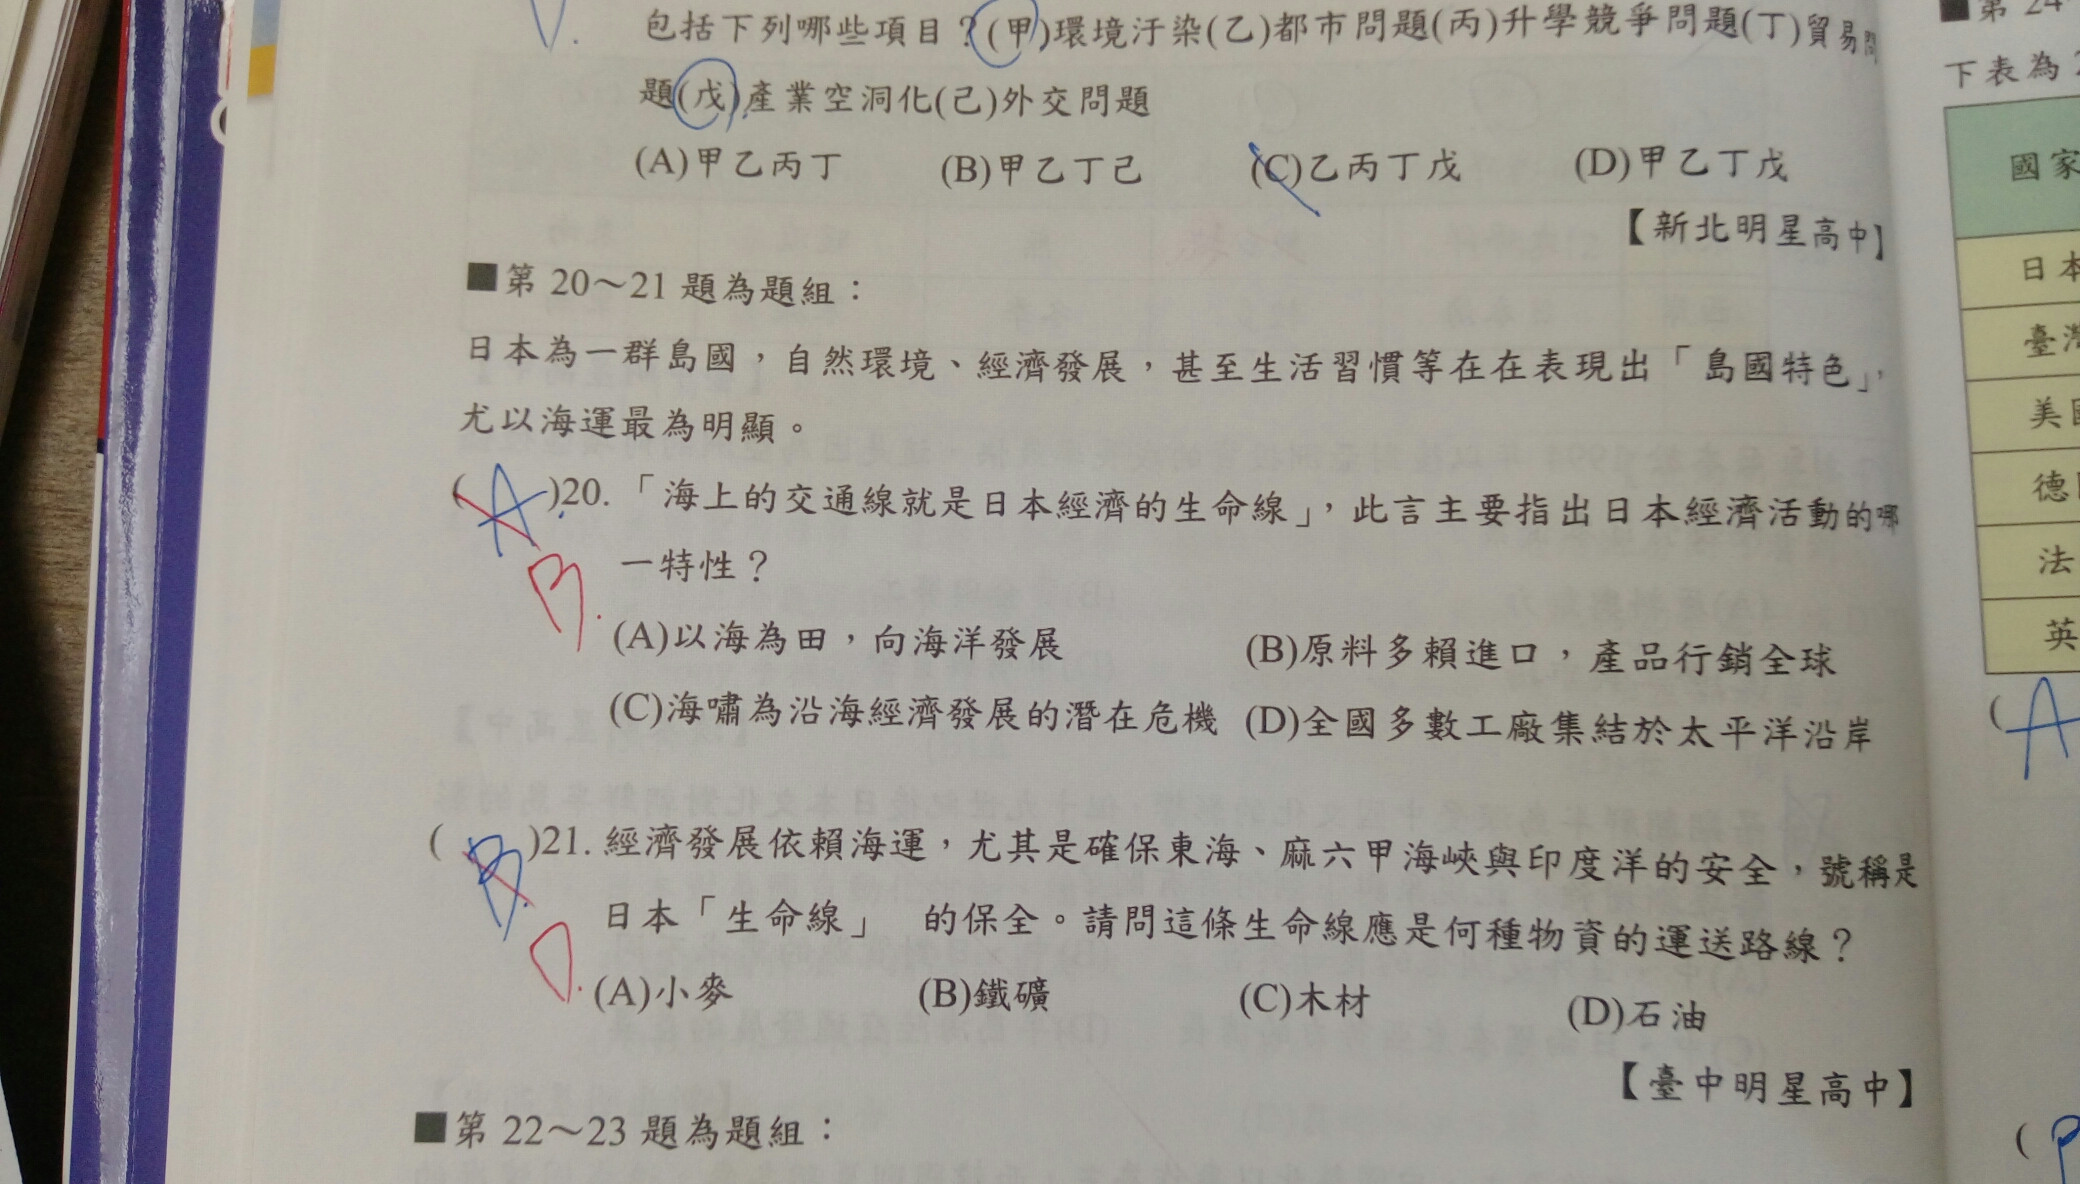 包括下列哪些項目？(甲)環境汙染(乙)都市問題(丙)升學競爭問題(丁)貿易問
題(戊)產業空洞化(己)外交問題
(A)甲乙丙丁 (B)甲乙丁己 (C)乙丙丁戊 (D)甲乙丁戊
【新北明星高中】
■第 20～21 題為題組：
日本為一群島國，自然環境、經濟發展，甚至生活習慣等在在表現出「島國特色」，
尤以海運最為明顯。
( A )20. 「海上的交通線就是日本經濟的生命線」，此言主要指出日本經濟活動的哪
一特性？
B.
(A)以海為田，向海洋發展 (B)原料多賴進口，產品行銷全球
(C)海嘯為沿海經濟發展的潛在危機 (D)全國多數工廠集結於太平洋沿岸
( B )21. 經濟發展依賴海運，尤其是確保東海、麻六甲海峽與印度洋的安全，號稱是
日本「生命線」 的保全。請問這條生命線應是何種物資的運送路線？
D.
(A)小麥 (B)鐵礦 (C)木材 (D)石油
【臺中明星高中】
■第 22～23 題為題組：
■第 24
下表為
國家
日本
臺灣
美
德
法
英
( A
(